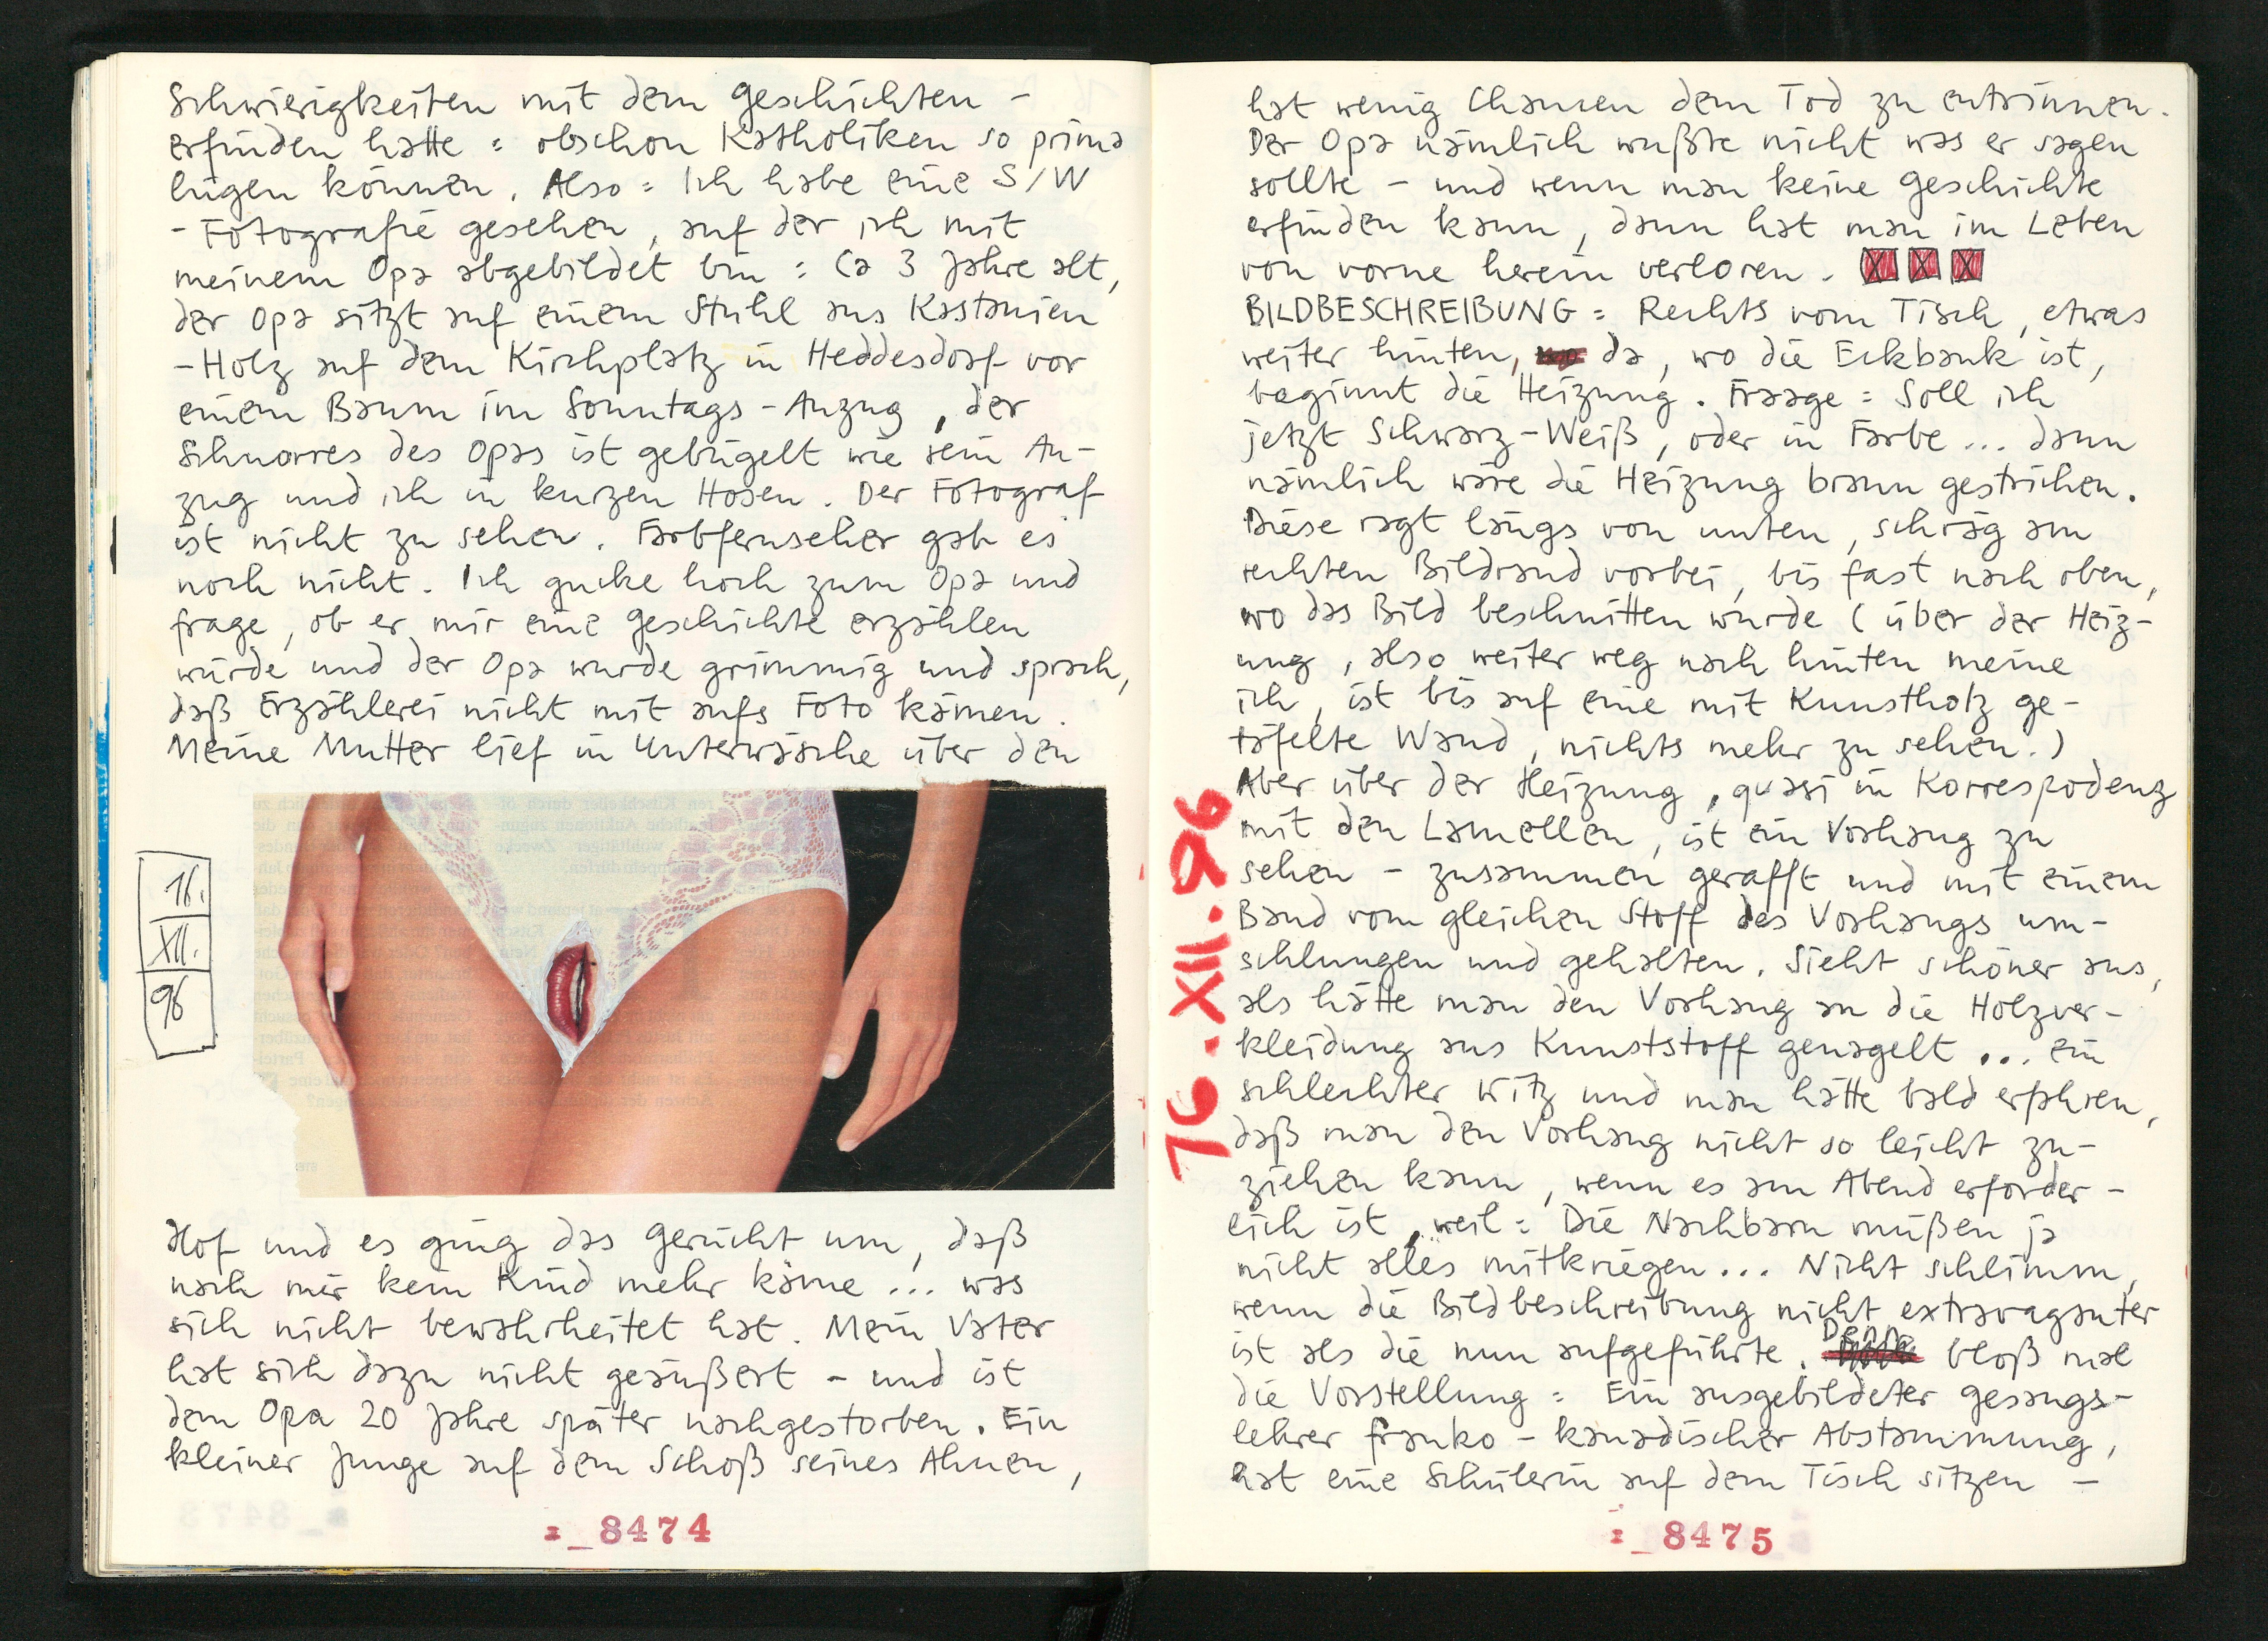 Schwierigkeiten mit dem Geschichten -
erfinden hatte : obschon Katholiken so prima
lügen können. Also : Ich habe eine S/W
- Fotografie gesehen, auf der ich mit
meinem Opa abgebildet bin : Ca 3 Jahre alt,
der Opa sitzt auf einem Stuhl aus Kastanien
- Holz auf dem Kirchplatz in Heddesdorf vor
einem Baum im Sonntags - Anzug, der
Schnorres des Opas ist gebügelt wie sein An-
zug und ich in kurzen Hosen. Der Fotograf
ist nicht zu sehen. Farbfernseher gab es
noch nicht. Ich gucke hoch zum Opa und
frage, ob er mir eine Geschichte erzählen
würde und der Opa wurde grimmig und sprach,
daß Erzählerei nicht mit aufs Foto kämen.
Meine Mutter lief in Unterwäsche über den
16.
XII.
96
Hof und es ging das Gerücht um, daß
nach mir kein Kind mehr käme ... was
sich nicht bewahrheitet hat. Mein Vater
hat sich dazu nicht geäußert - und ist
dem Opa 20 Jahre später nachgestorben. Ein
kleiner Junge auf dem Schoß seines Ahnen,
:_8474
hat wenig Chancen dem Tod zu entrinnen.
Der Opa nämlich wußte nicht was er sagen
sollte - und wenn man keine Geschichte
erfinden kann, dann hat man im Leben
von vorne herein verloren. X X X
BILDBESCHREIBUNG : Rechts vom Tisch, etwas
weiter hinten, da, wo die Eckbank ist,
beginnt die Heizung. Fraage : Soll ich
jetzt Schwarz-Weiß, oder in Farbe ... dann
nämlich wäre die Heizung braun gestrichen.
Diese ragt längs von unten, schräg am
rechten Bildrand vorbei, bis fast nach oben,
wo das Bild beschnitten wurde ( über der Heiz-
ung, also weiter weg nach hinten meine
ich, ist bis auf eine mit Kunstholz ge-
täfelte Wand, nichts mehr zu sehen.)
Aber über der Heizung, quasi in Korrespodenz
mit den Lamellen, ist ein Vorhang zu
sehen - zusammen gerafft und mit einem
Band vom gleichen Stoff des Vorhangs um-
schlungen und gehalten. Sieht schöner aus,
als hätte man den Vorhang an die Holzver-
kleidung aus Kunststoff genagelt ... ein
schlechter Witz und man hätte bald erfahren,
daß man den Vorhang nicht so leicht zu-
ziehen kann, wenn es am Abend erforder -
lich ist, weil : Die Nachbarn müßen ja
nicht alles mitkriegen ... Nicht schlimm,
wenn die Bildbeschreibung nicht extravaganter
ist als die nun aufgeführte. Denn bloß mal
die Vorstellung : Ein ausgebildeter Gesangs-
lehrer franko - kanadischer Abstammung,
hat eine Schülerin auf dem Tisch sitzen -
16.XII.96
:_8475